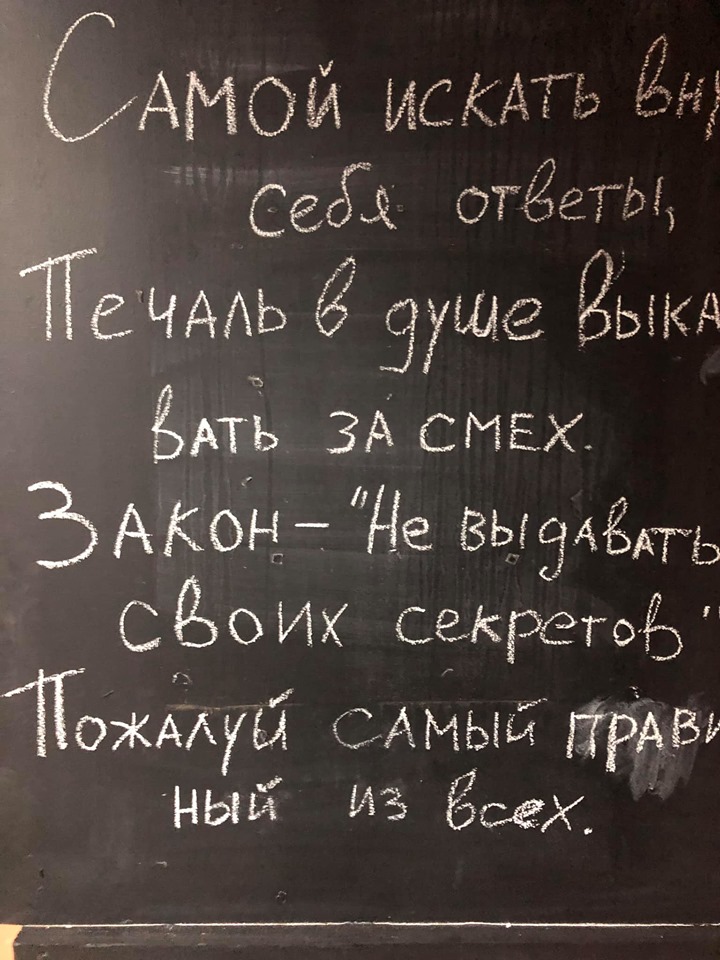 Самой искать вну
себя ответы,
Печаль в душе выка
вать за смех.
Закон – "Не выдавать
своих секретов"
Пожалуй самый прави
ный из всех.